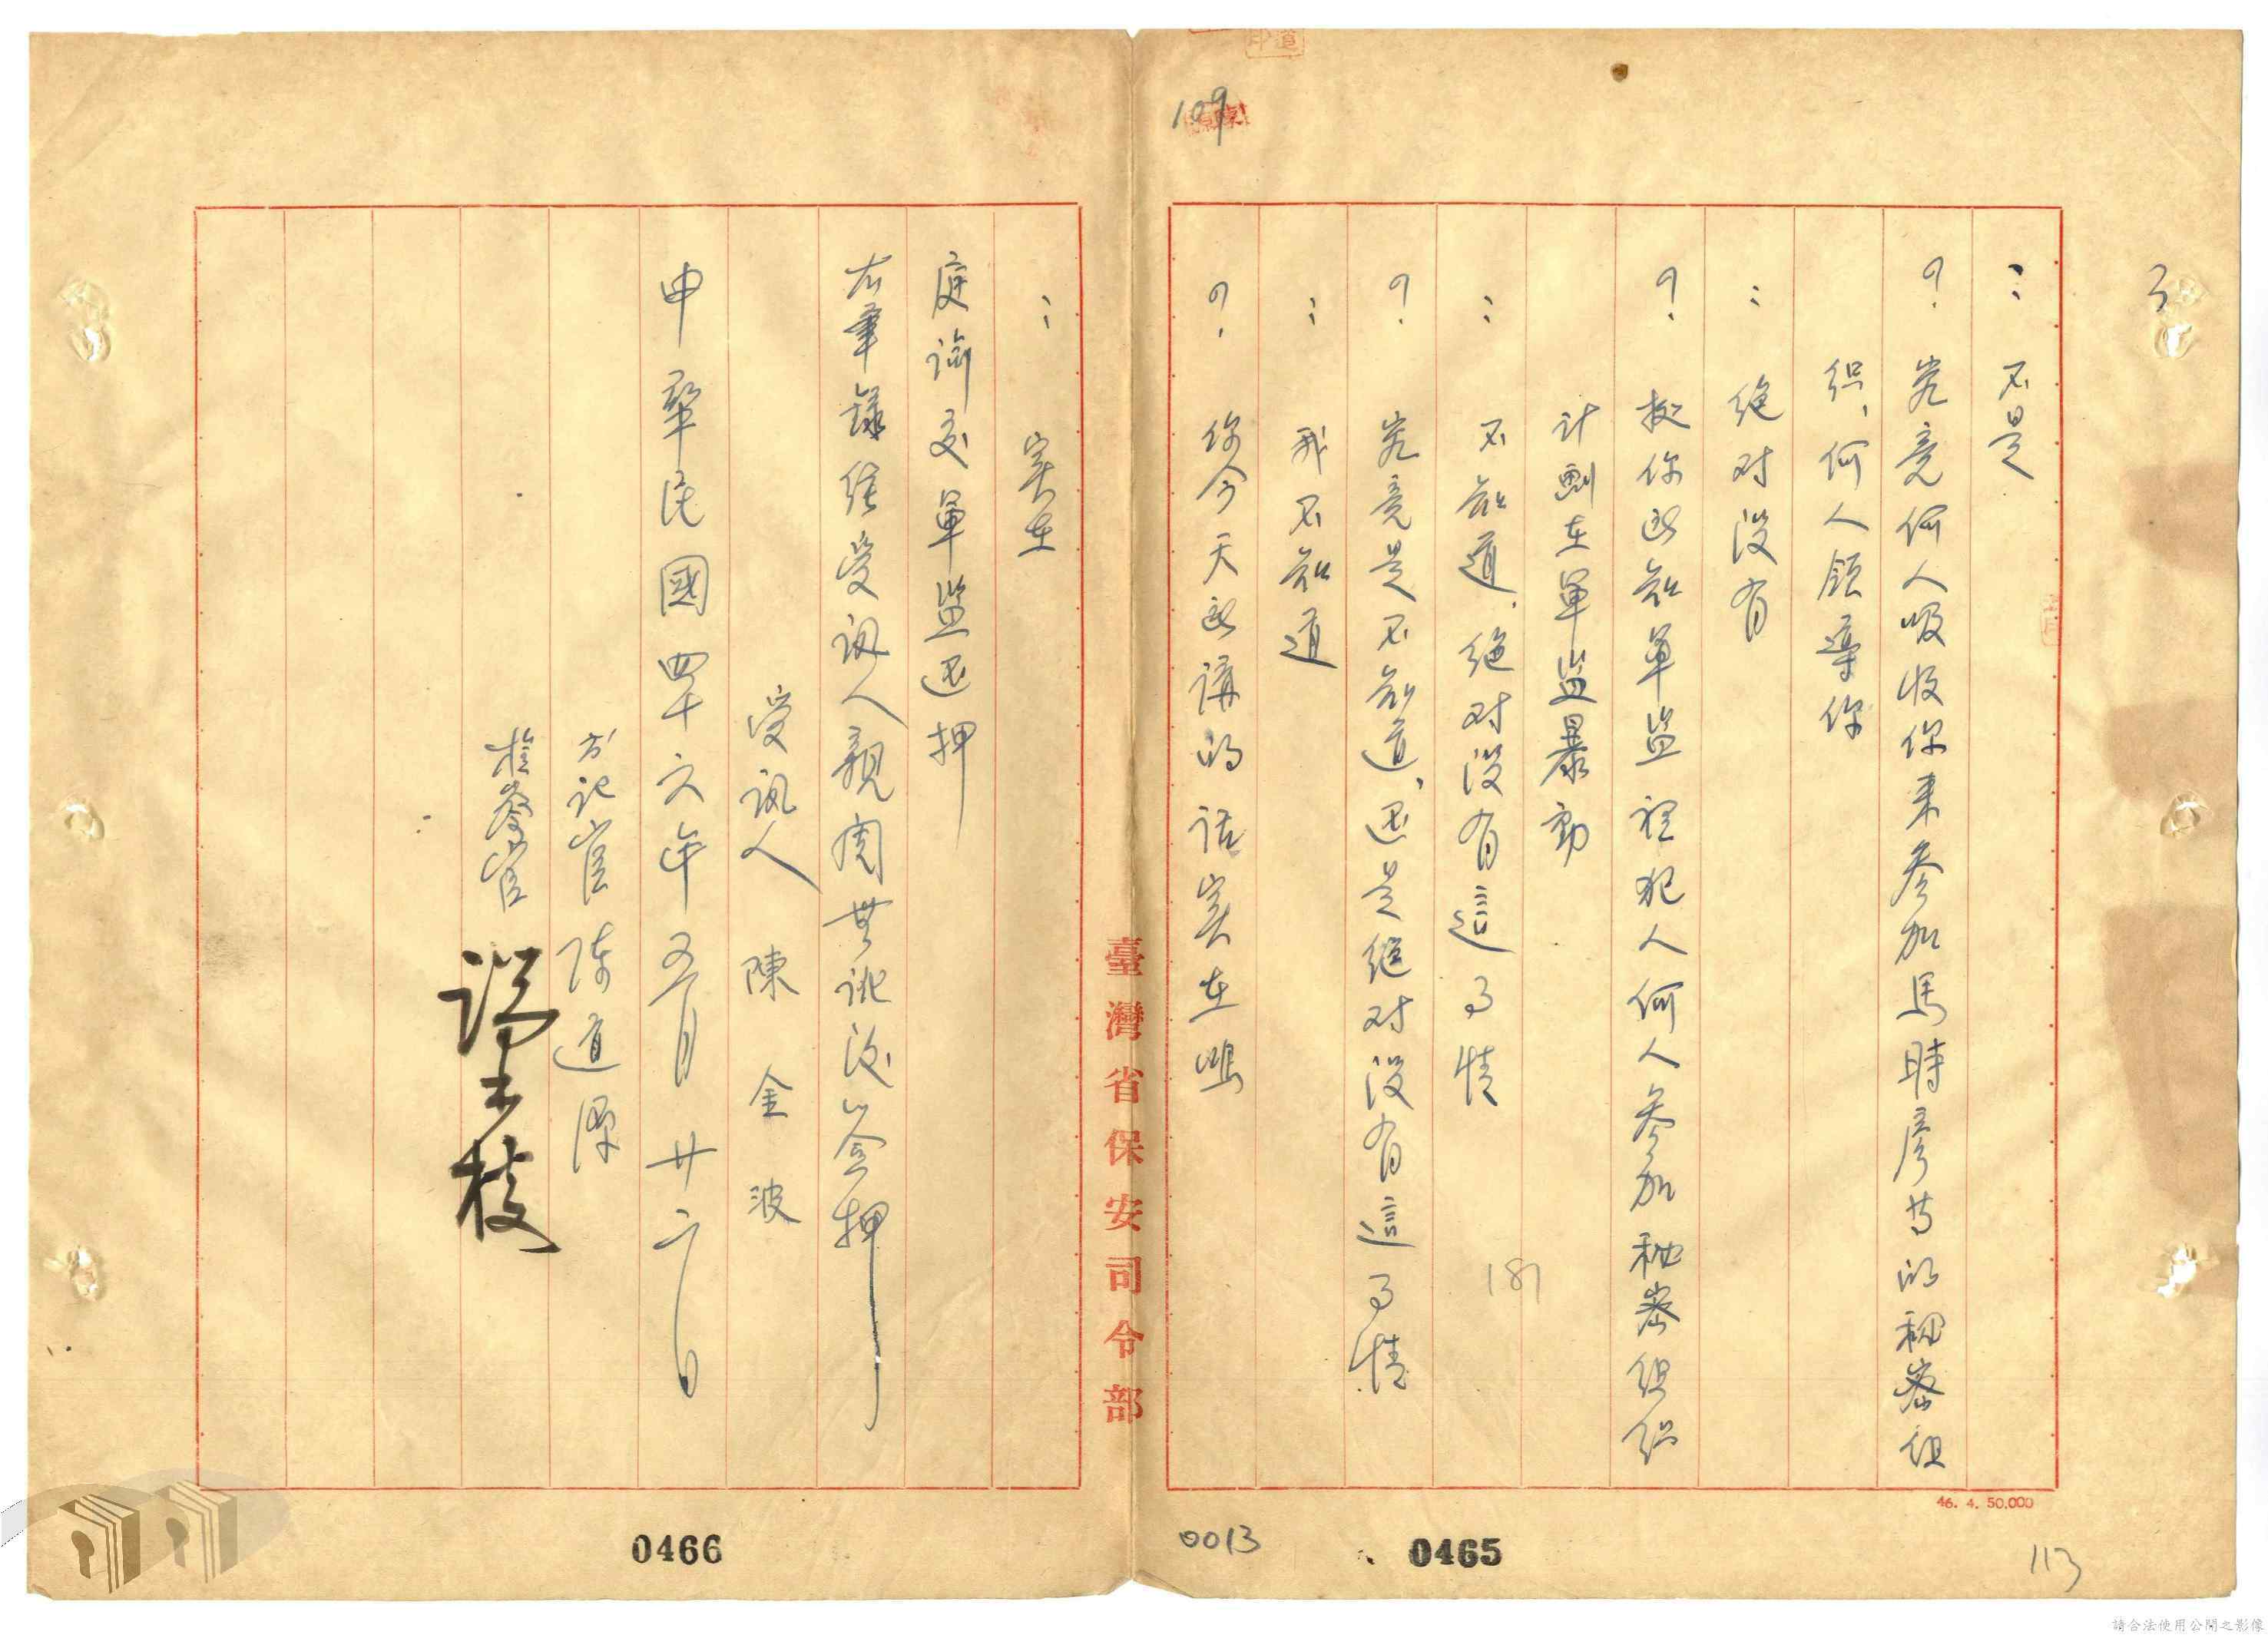 3
：不是
？究竟何人吸收你来参加馬時彦等的秘密组
织，何人領導你
：绝对没有
？据你所知軍监裡犯人何人参加秘密组织
计劃在軍监暴動
：不知道，绝对没有這事情
？究竟是不知道，还是绝对没有這事情
：我不知道
？你今天所講的话实在嗎
109
187
46. 4. 50.000
113
0465
0013
臺灣省保安司令部
：实在
庭諭交軍监还押
右筆錄经受訊人親閱無訛後簽押
受訊人 陳金波
中華民國四十六年五月廿二日
书记官 陈道
检察官
0466
請合法使用公開之影像